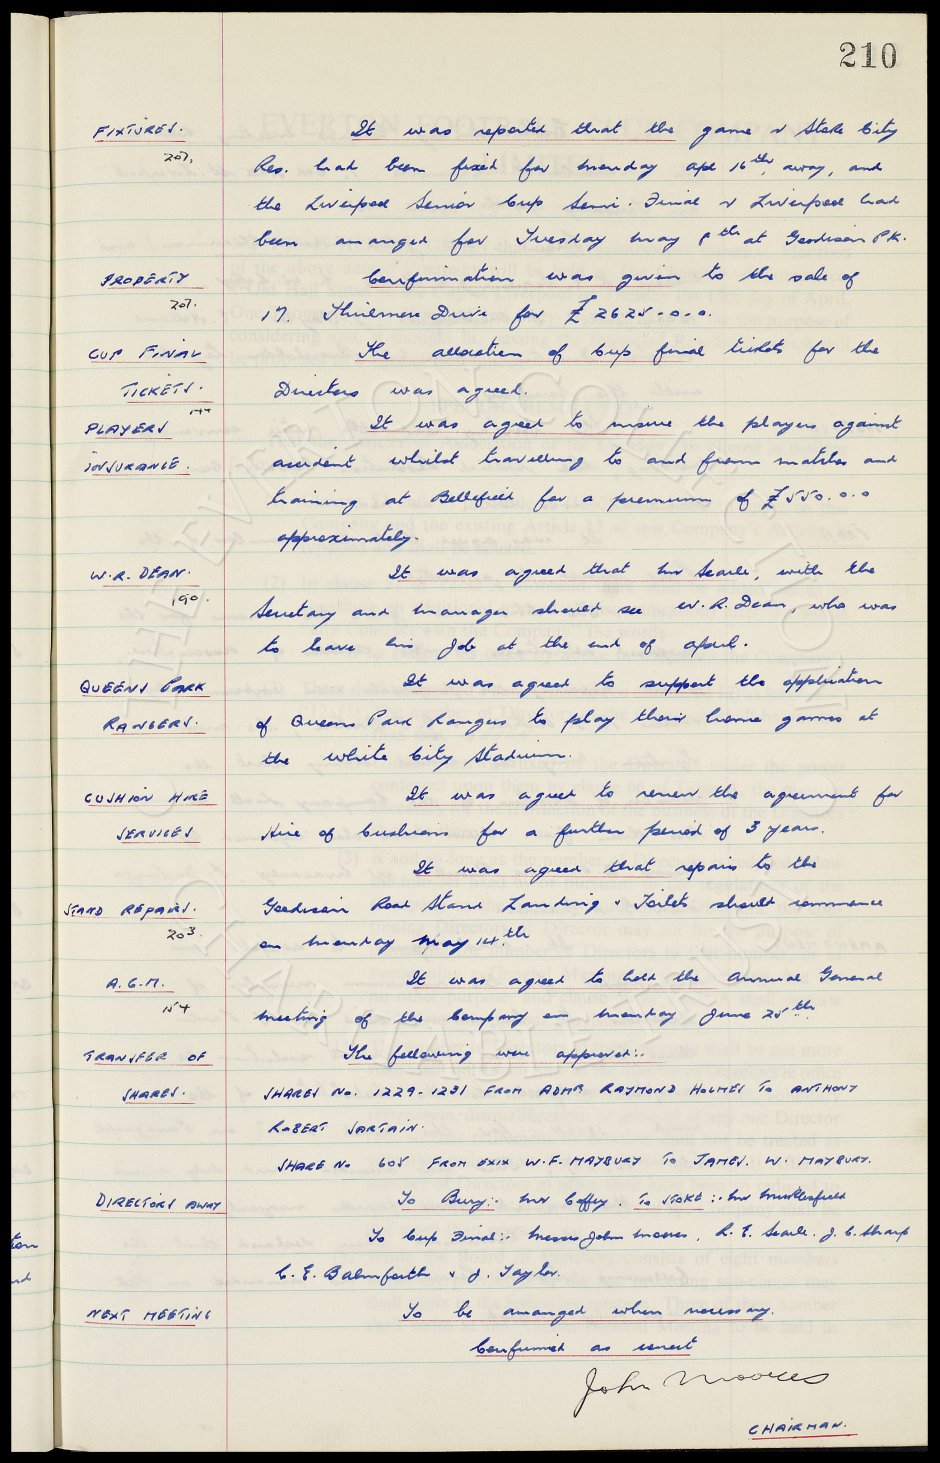 210
FIXTURES. It was reported that the game v Stoke City
207. Res. had been fixed for Monday Apl 16th, away, and
the Liverpool Senior Cup Semi. Final v Liverpool had
been arranged for Tuesday May 8th at Goodison PK.
PROPERTY Confirmation was given to the sale of
207. 17. Thirlmere Drive for £2625-0-0.
CUP FINAL The allocation of Cup final tickets for the
TICKETS. Directors was agreed.
PLAYERS It was agreed to insure the players against
INSURANCE. accident whilst travelling to and from matches and
training at Bellefield for a premium of £550.0.0
approximately.
W.R. DEAN. It was agreed that Mr Searle, with the
190. Secretary and Manager should see W.R. Dean, who was
to leave his job at the end of April.
QUEENS PARK It was agreed to support the application
RANGERS. of Queens Park Rangers to play their home games at
the White City Stadium.
CUSHION HIRE It was agreed to renew the agreement for
SERVICES Hire of Cushions for a further period of 3 years.
It was agreed that repairs to the
STAND REPAIRS. Goodison Road Stand Landing & Toilets should commence
203. on Monday May 14.th
A.G.M. It was agreed to hold the Annual General
154 Meeting of the Company on Monday June 25th.
TRANSFER OF The following were approved:-
SHARES. SHARES No. 1229-1231 FROM ADMR RAYMOND HOLMES TO ANTHONY
ROBERT SARTAIN.
SHARE No 605 FROM EXIX W.F. MAYBURY TO JAMES. W. MAYBURY.
DIRECTORS AWAY To Bury:- Mr Coffey. TO STOKE:- Mr Micklesfield
To Cup Final:- Messrs John Moores, R.E. Searle. J.C. Sharp
C.E. Balmforth & J. Taylor.
NEXT MEETING To be arranged when necessary.
Confirmed as correct
John Moores
CHAIRMAN.